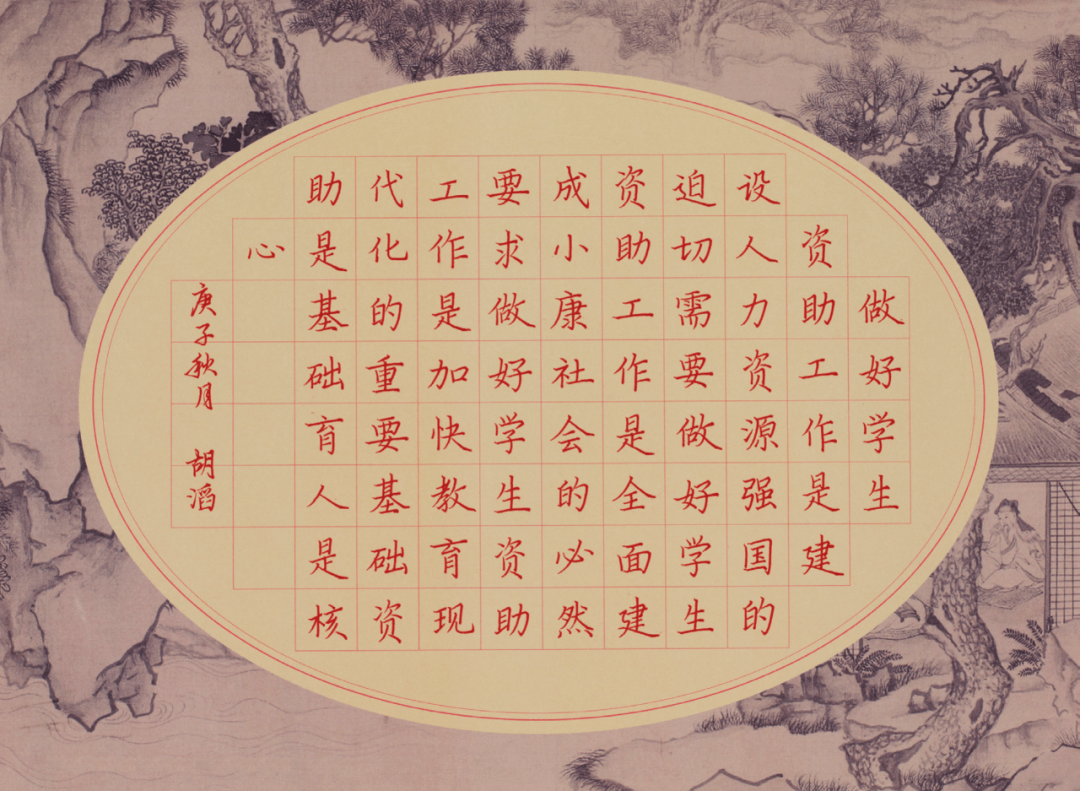 做好学生
资助工作是建
设人力资源强国的
迫切需要做好学生
资助工作是全面建
成小康社会的必然
要求做好学生资助
工作是加快教育现
代化的重要基础资
助是基础育人是核
心
庚子秋月 胡滔